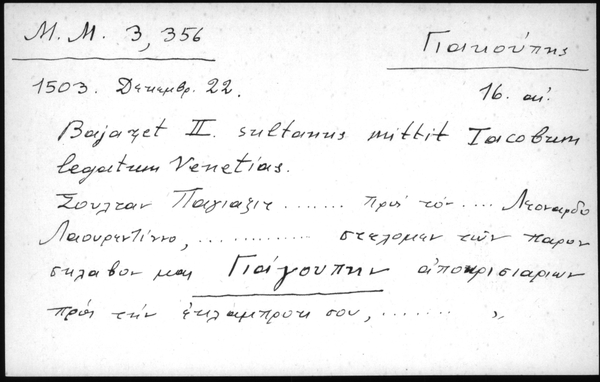 M. M. 3, 356
Γιακούπης
1503. Δεκεμβρ. 22.
16. αἰ.
Bajazet II. sultanus mittit Iacobum
legatum Venetias.
Σουλταν Παγιαζιτ ....... πρὸς τὸν .... Λεοναρδο
Λαουρεντίνο, ............. στελομεν τῶν παρον
σκλαβον μας Γιάγουπην ἀποκρισιαριων
πρὸς τὴν ἐκλαμπροτι σου, ........ „